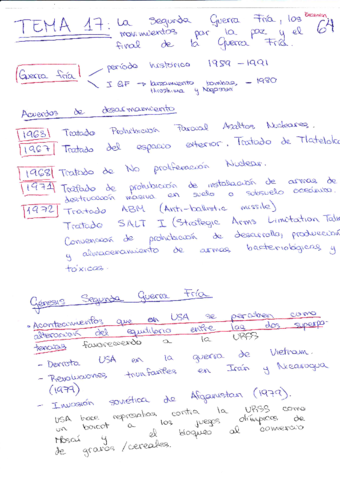 TEMA 17: La Segunda Guerra Fría, los
movimientos por la paz y el
final de la Guerra Fría.
64
Guerra fría
período histórico 1989 - 1991
I GF → lanzamiento bombas - 1980
Hiroshima y Nagasaki
Acuerdos de desarmamiento
1963 Tratado Prohibición Parcial Nucleares.
1967 Tratado del espacio exterior. Tratado de Tlatelolco
1968 Tratado de No proliferación Nuclear.
1971 Tratado de prohibición de instalación de armas de
destrucción masiva en suelo o subsuelo oceánico.
1972 Tratado ABM (Anti-balistic missile)
Tratado SALT I (Strategic Arms Limitation Talks
Convención de prohibición de desarrollo, producción
y almacenamiento de armas bacteriológicas y
tóxicas.
Génesis Segunda Guerra Fría
Acontecimientos que en USA se perciben como
alteración del equilibrio entre las dos superpo-
tencias favoreciendo a la URSS
- Derrota USA en la guerra de Vietnam.
- Revoluciones triunfantes en Irán y Nicaragua
(1979)
- Invasión soviética de Afganistán (1979).
USA hace represalias contra la URSS como
un boicot a los juegos olímpicos de
Moscú y el bloqueo al comercio
de granos/cereales.